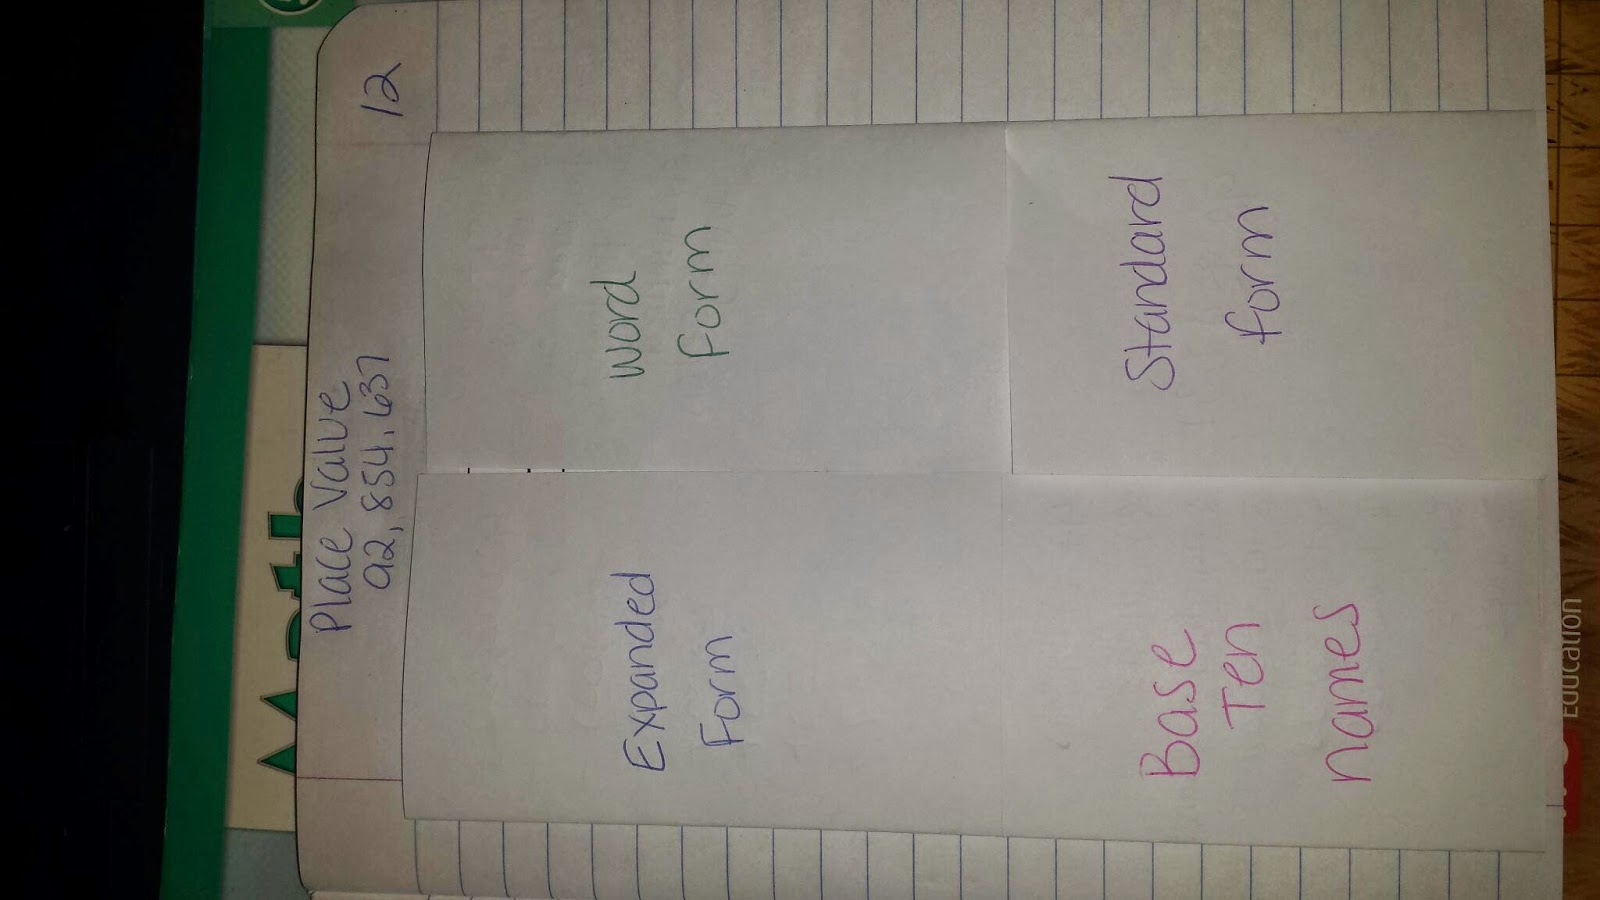 Place Value
12
92,854,637
Expanded Form
Word Form
Base Ten names
Standard form
Education